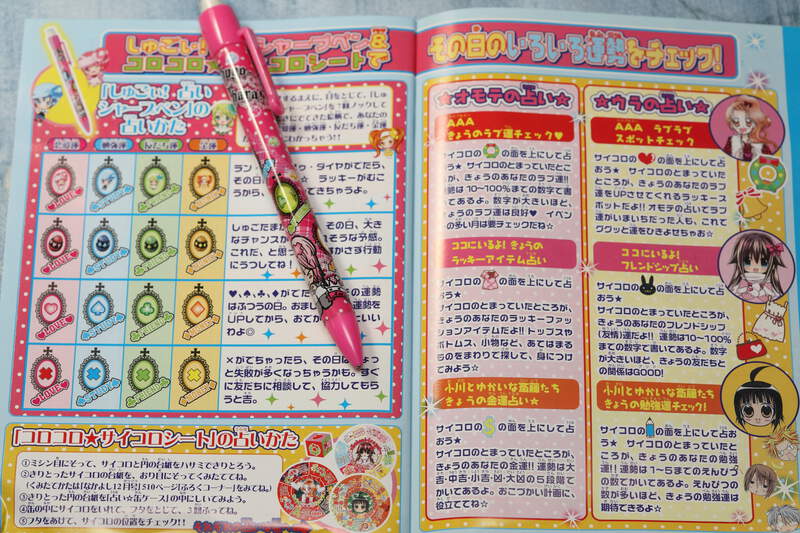 しゅごい! シャープペン&
コロコロ★ コロシートで
「しゅごい! 占い
シャープペン」の
占いかた
恋愛運 勉強運 友だち運 金運
LOVE
STUDY
LOVE
STUDY
LOVE
STUDY
LOVE
STUDY
ラン
・ダイヤがでたら、
その日
ラッキーがむこ
うから、
てきちゃうよ。
しゅごたま
その日、大き
なチャンスが
そうな予感。
これだ、と思
かさず行動
にうつしてね!
♥、♠、♣、♦がで
の運勢
はふつうの日。おま
運勢を
UPしてから、おでか
いい
わよ◎
×がでちゃったら、その日は
っと
失敗が多くなっちゃうかも。す
に友だちに相談して、協力してもら
うと吉。
「コロコロ★サイコロシート」の占いかた
①ミシン目にそって、サイコロと円の台紙をハサミできりとろう。
②きりとったサイコロの台紙を、おり目にそってくみたててね。
(くみたてかたはなかよし12月号510ページ「ふろくコーナー」をみてね。)
③きりとった円の台紙を「占い☆缶ケース」の中にしいてみよう。
④缶の中にサイコロをいれて、フタをとじて、3回ふってね。
⑤フタをあけて、サイコロの位置をチェック!!
その日のいろいろ運勢をチェック!
☆オモテの占い☆
AAA
きょうのラブ運チェック♥
サイコロの の面を上にして占
おう★ サイコロのとまっていたと
ころが、きょうのあなたのラブ運!! 運
勢は10〜100%までの数字で書い
てあるよ。数字が大きいほど、きょ
うのラブ運は良好♥ イベント
の多い月は要チェックだね☆
ココにいるよ! きょうの
ラッキーアイテム占い
サイコロの の面を上にして占
おう★
サイコロのとまっていたところが、
きょうのあなたのラッキーファッ
ションアイテムだよ!! トップスや
ボトムス、小物など、あてはまる
ものをまわりで探して、身につけ
てみよう☆
小川とゆかいな斎藤たち
きょうの金運占い
サイコロの の面を上にして占
おう★
サイコロのとまっていたところが、
きょうのあなたの金運!! 運勢は大
吉・中吉・小吉・凶・大凶の5段階で
かいてあるよ。おこづかい計画に、
役立ててね☆
☆ウラの占い☆
AAA ラブラブ
スポットチェック
サイコロの♥の面を上にして占
おう★ サイコロのとまっていた
ところが、きょうのあなたのラブ
運をUPさせてくれるラッキース
ポットだよ!! オモテの占いでラブ
運がいまいちだった人も、これで
ググッと運をひきよせちゃお☆
ココにいるよ!
フレンドシップ占い
サイコロの の面を上にして占
おう★
サイコロのとまっていたところが、
きょうのあなたのフレンドシップ
(友情)運だよ!! 運勢は10〜100%
までの数字で書いてあるよ。数字
が大きいほど、きょうの友だちと
の関係はGOOD!
小川とゆかいな斎藤たち
きょうの勉強運チェック!
サイコロの の面を上にして占
おう★ サイコロのとまっていた
ところが、きょうのあなたの勉強
運!! 運勢は1〜5までのえんぴつ
の数でかいてあるよ。えんぴつの
数が多いほど、きょうの勉強運は
期待できるよ☆